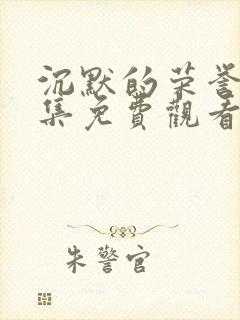 沉默的荣誉
集免費觀看
朱警官